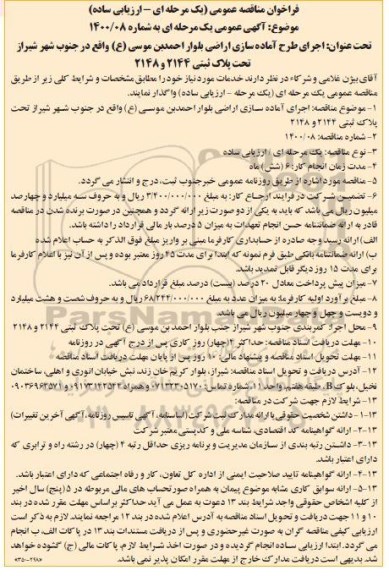 فراخوان مناقصه عمومی (یک مرحله ای – ارزیابی ساده)
موضوع: آگهی عمومی یک مرحله ای به شماره ۱۴۰۰/۰۸
تحت عنوان: اجرای طرح آماده سازی اراضی بلوار احمدبن موسی (ع) واقع در جنوب شهر شیراز
تحت پلاک ثبتی ۲۱۴۴ و ۲۱۴۸
آقای بیژن غلامی و شرکاء در نظر دارند خدمات مورد نیاز خود را مطابق مشخصات و شرایط کلی زیر از طریق
مناقصه عمومی یک مرحله ای (یک مرحله - ارزیابی ساده) واگذار نمایند.
۱- موضوع مناقصه: اجرای آماده سازی اراضی بلوار احمدبن موسی (ع) واقع در جنوب شهر شیراز تحت
پلاک ثبتی ۲۱۴۴ و ۲۱۴۸
۲- شماره مناقصه: ۱۴۰۰/۰۸
۳- نوع مناقصه: یک مرحله ای / ارزیابی ساده
۴- مدت زمان انجام کار: ۶ (شش) ماه
۵- مناقصه مورد اشاره از طریق روزنامه عمومی خبرجنوب ثبت، درج و انتشار می گردد.
۶- تضمین شرکت در فرآیند ارجاع کار: به مبلغ ۳/۴۰۰/۰۰۰/۰۰۰ ریال و به حروف سه میلیارد و چهارصد
میلیون ریال می باشد که باید به یکی از دو صورت زیر ارائه گردد و همچنین در صورت برنده شدن در مناقصه
قادر به ارائه ضمانتنامه حسن انجام تعهدات به میزان ۵ درصد بار مالی قرارداد را داشته باشد.
الف) ارائه رسید وجه صادره از حسابداری کارفرما مبنی بر واریز مبلغ فوق الذکر به حساب اعلام شده
ب) ارائه ضمانتنامه بانکی طبق فرم نمونه که ابتدا برای مدت ۴۵ روز معتبر بوده و پس از آن نیز با اعلام کارفرما
برای مدت ۱۵ روز دیگر قابل تمدید باشد.
۷- میزان پیش پرداخت معادل ۲۰ درصد (بیست) درصد مبلغ قرارداد می باشد.
۸- مبلغ برآورد اولیه کارفرما: به میزان عدد به مبلغ ۶۸/۲۴۴/۰۰۰/۰۰۰ ریال و به حروف شصت و هشت میلیارد
و دویست و چهل و چهار میلیون ریال می باشد.
۹- محل اجرا: کمربندی جنوب شهر شیراز جنب بلوار احمد بن موسی (ع) تحت پلاک ثبتی ۲۱۴۴ و ۲۱۴۸
۱۰- مهلت دریافت اسناد مناقصه: حداکثر ۴ (چهار) روز کاری پس از درج آگهی در روزنامه
۱۱- مهلت تحویل اسناد مناقصه و پیشنهاد مالی: ۱۰ روز پس از پایان مهلت دریافت اسناد مناقصه
۱۲- آدرس دریافت و تحویل اسناد مناقصه: شیراز، بلوار کریم خان زند، نبش خیابان انوری و اهلی، ساختمان
نخیل، بلوک B، طبقه هفتم، واحد ۱، شماره تماس:
۱۳- شرایط لازم جهت شرکت در مناقصه:
۱۳-۱- داشتن شخصیت حقوقی با ارائه مدارک ثبت شرکت (اساسنامه، آگهی تاسیس روزنامه، آگهی آخرین تغییرات)
۱۳-۲- ارائه گواهینامه کد اقتصادی، شناسه ملی و کدپستی معتبر شرکت
۱۳-۳- داشتن رتبه بندی از سازمان مدیریت و برنامه ریزی حداقل رتبه ۴ (چهار) در رشته راه و ترابری که
دارای اعتبار باشد.
۱۳-۴- ارائه گواهینامه تایید صلاحیت ایمنی از اداره کل تعاون، کار و رفاه اجتماعی که دارای اعتبار باشد.
۱۳-۵- ارائه سوابق کاری مشابه موضوع پیمان به همراه صورتحساب های مالی مربوطه در ۵ (پنج) سال اخیر
از کلیه اشخاص حقوقی واجد شرایط بند ۱۳ دعوت به عمل می آید حداکثر براساس مهلت مقرر شده در بند
۱۰ و ۱۱ جهت دریافت و تحویل اسناد مناقصه به آدرس اعلام شده در بند ۱۲ مراجعه نمایند. لازم به ذکر است
ارزیابی کیفی مناقصه گران به صورت غیرحضوری و پس از دریافت مستندات بند ۱۳ در پاکات الف، ب انجام
می گردد. ابتدا ارزیابی ساده انجام گردیده و در صورت اخذ شرایط لازم، پاکات مالی (ج) گشوده خواهد
شد. بدیهی است دریافت مدارک خارج از مهلت مقرر امکان پذیر نمی باشد.